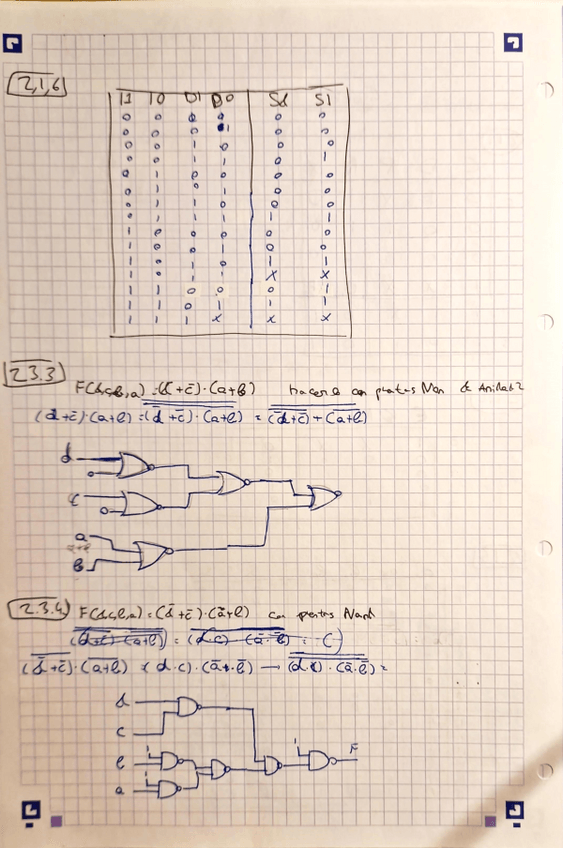 2,1,6
I1 I0 D1 D0 Sd S1
0 0 0 0 0 0
0 0 0 1 0 0
0 0 1 0 0 0
0 0 1 1 0 1
0 1 0 0 0 0
0 1 0 1 0 0
0 1 1 0 0 0
0 1 1 1 1
1 0 0 0 0 0
1 0 0 1 0 0
1 0 1 0 1 1
1 0 1 1 X X
1 1 0 0 0 1
1 1 0 1 1 1
1 1 1 X X X
2.3.3
F(d,c,b,a) = (d+c̅)·(a+b) hacerlo con puertas Nor de 2
(d+c̅)·(a+b) = (d+c̅)·(a+b) = (d+c̅)+(a+b)
d
0
c
0
a
a+b
b
2.3.4
F(d,c,b,a) = (d̅+c̅)·(a+b) con puertas Nand
(d̅+c̅)·(a+b) (d·c)·(a̅·b̅) → (d·c)·(a̅·b̅) =
d
c
1
b
1 F
1
a